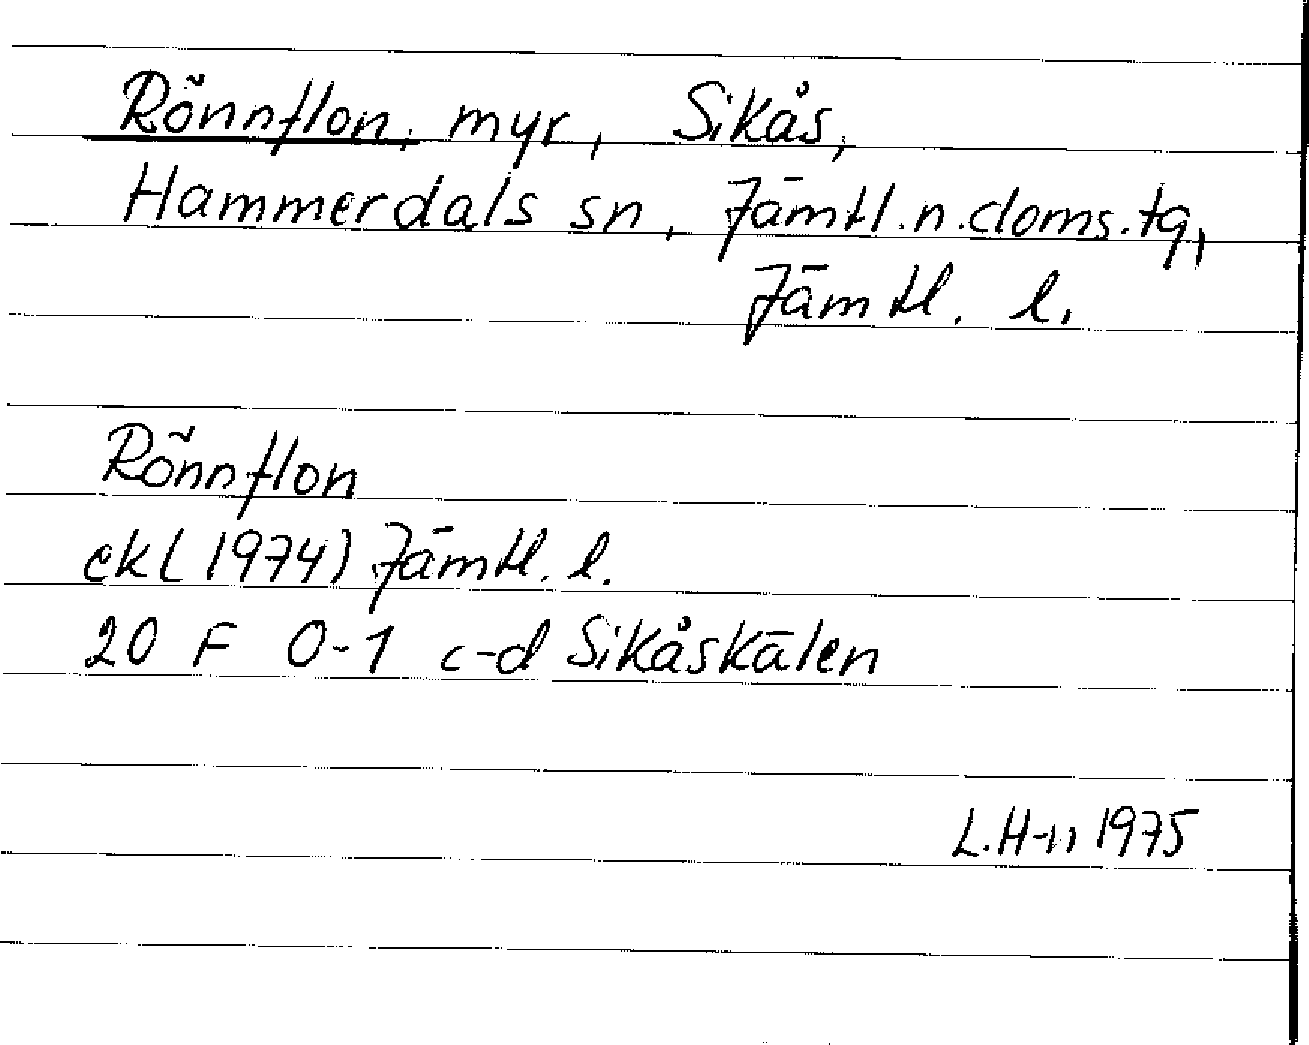 Rönnflon, myr, Sikås,
Hammerdals sn, Jämtl.n.doms.tg,
Jämtl. l.
Rönnflon
ekl (1974) Jämtl. l.
20 F 0-1 c-d Sikåskälen
L.H-n 1975